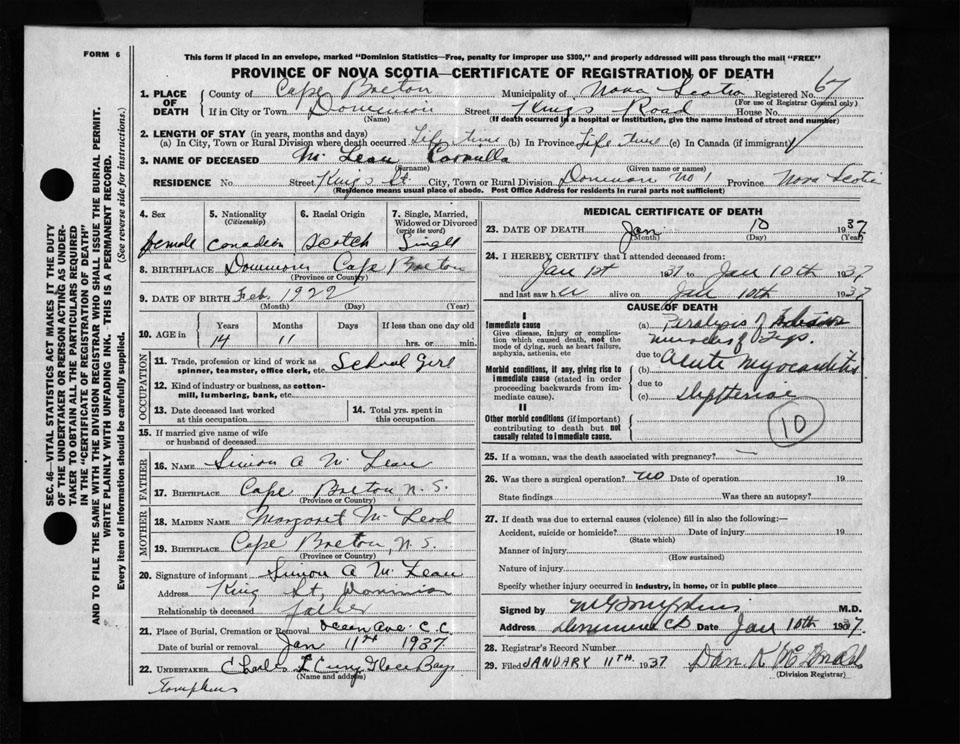 FORM 6
This form if placed in an envelope, marked "Dominion Statistics—Free, penalty for improper use $300," and properly addressed will pass through the mail "FREE"
PROVINCE OF NOVA SCOTIA—CERTIFICATE OF REGISTRATION OF DEATH
SEC. 46—VITAL STATISTICS ACT MAKES IT THE DUTY
OF THE UNDERTAKER OR PERSON ACTING AS UNDER-
TAKER TO OBTAIN ALL THE PARTICULARS REQUIRED
IN THE "CERTIFICATE OF REGISTRATION OF DEATH"
AND TO FILE THE SAME WITH THE DIVISION REGISTRAR WHO SHALL ISSUE THE BURIAL PERMIT.
WRITE PLAINLY WITH UNFADING INK. THIS IS A PERMANENT RECORD.
Every item of information should be carefully supplied. (See reverse side for instructions.)
1. PLACE OF DEATH
County of Cape Breton Municipality of Nova Scotia Registered No. 67
(For use of Registrar General only)
If in City or Town Dominion Street Kings Road House No.
(Name) (If death occurred in a hospital or institution, give the name instead of street and number)
2. LENGTH OF STAY (in years, months and days)
(a) In City, Town or Rural Division where death occurred Life time (b) In Province Life time (c) In Canada (if immigrant)
3. NAME OF DECEASED Mc Lean
(Surname) (Given name or names)
RESIDENCE No. Street Kings St. City, Town or Rural Division Dominion No 1 Province Nova Scotia
(Residence means usual place of abode. Post Office Address for residents in rural parts not sufficient)
4. Sex
female
5. Nationality
(Citizenship)
Canadian
6. Racial Origin
Scotch
7. Single, Married,
Widowed or Divorced
(write the word)
Single
8. BIRTHPLACE Dominion Cape Breton
(Province or Country)
9. DATE OF BIRTH Feb. 1922
(Month) (Day) (Year)
10. AGE in Years Months Days If less than one day old
14 11 hrs. or min.
OCCUPATION
11. Trade, profession or kind of work as School Girl
spinner, teamster, office clerk, etc.
12. Kind of industry or business, as cotton-
mill, lumbering, bank, etc.
13. Date deceased last worked
at this occupation
14. Total yrs. spent in
this occupation
15. If married give name of wife
or husband of deceased
FATHER
16. NAME Simon A Mc Lean
17. BIRTHPLACE Cape Breton, N.S.
(Province or Country)
MOTHER
18. MAIDEN NAME Margaret Mc Leod
19. BIRTHPLACE Cape Breton, N.S.
(Province or Country)
20. Signature of informant Simon A Mc Lean
Address King St, Dominion
Relationship to deceased father
21. Place of Burial, Cremation or Removal Ocean Ave. C.C.
Date of burial or removal Jan 11th 1937
22. UNDERTAKER Charles Glace Bay
(Name and address)
Tompkins
MEDICAL CERTIFICATE OF DEATH
23. DATE OF DEATH Jan 10 1937
(Month) (Day) (Year)
24. I HEREBY CERTIFY that I attended deceased from:
Jan 1st 1937 to Jan 10th 1937
and last saw her alive on Jan 10th 1937
CAUSE OF DEATH
I
Immediate cause
Give disease, injury or complica-
tion which caused death, not the
mode of dying, such as heart failure,
asphyxia, asthenia, etc
Morbid conditions, if any, giving rise to
immediate cause (stated in order
proceeding backwards from im-
mediate cause).
II
Other morbid conditions (if important)
contributing to death but not
causally related to immediate cause.
(a) Paralysis of
muscles of
due to
(b) Acute Myocarditis
due to
(c) Diphtheria
10
25. If a woman, was the death associated with pregnancy? —
26. Was there a surgical operation? no Date of operation 19
State findings Was there an autopsy?
27. If death was due to external causes (violence) fill in also the following:—
Accident, suicide or homicide? Date of injury 19
(State which)
Manner of injury
(How sustained)
Nature of injury
Specify whether injury occurred in industry, in home, or in public place
Signed by M G Tompkins M.D.
Address Dominion C B Date Jan 10th 1937.
28. Registrar's Record Number
29. Filed JANUARY 11TH. 1937 Dan. K McDonald
(Division Registrar)